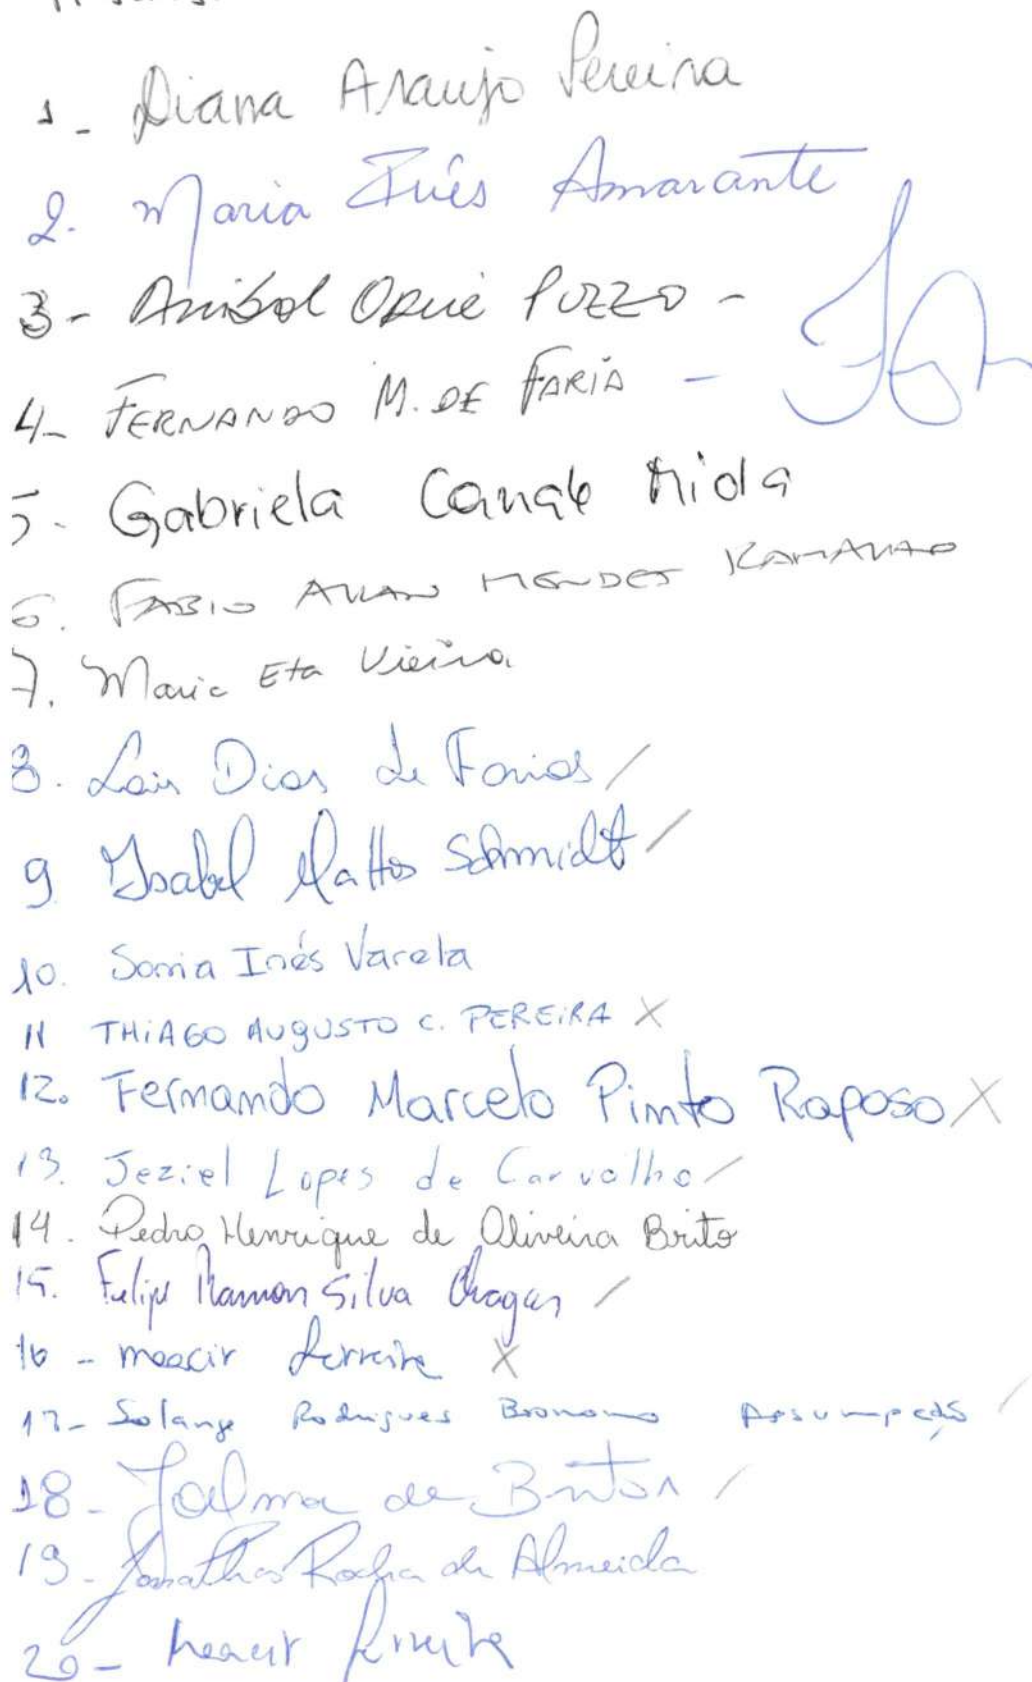 1- Diana Araujo Pereira
2. Maria Inês Amarante
3- Anibal Orué Pozzo -
4- FERNANDO M. DE FARIA -
5- Gabriela Canale Miola
6. FABIO ALLAN MENDES RAMALHO
7. Maria Eta Vieira
8. Lais Dias de Farias /
9 Isabel Mattos Schmidt /
10. Sonia Inés Varela
11 THIAGO AUGUSTO C. PEREIRA X
12. Fernando Marcelo Pinto Raposo X
13. Jeziel Lopes de Carvalho /
14. Pedro Henrique de Oliveira Brito
15. Felipe Ramon Silva Chagas /
16 - moacir ferreira X
17- Solange Rodrigues Bonomo Assumpção /
18- Jalma de Briton /
19- Jonathas Rocha de Almeida
20- moacir ferreira